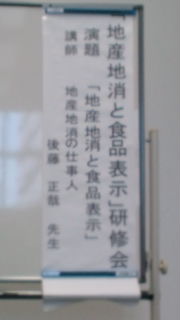 「地産地消と食品表示」研修会
演題 「地産地消と食品表示」
講師 地産地消の仕事人
後藤 正哉 先生